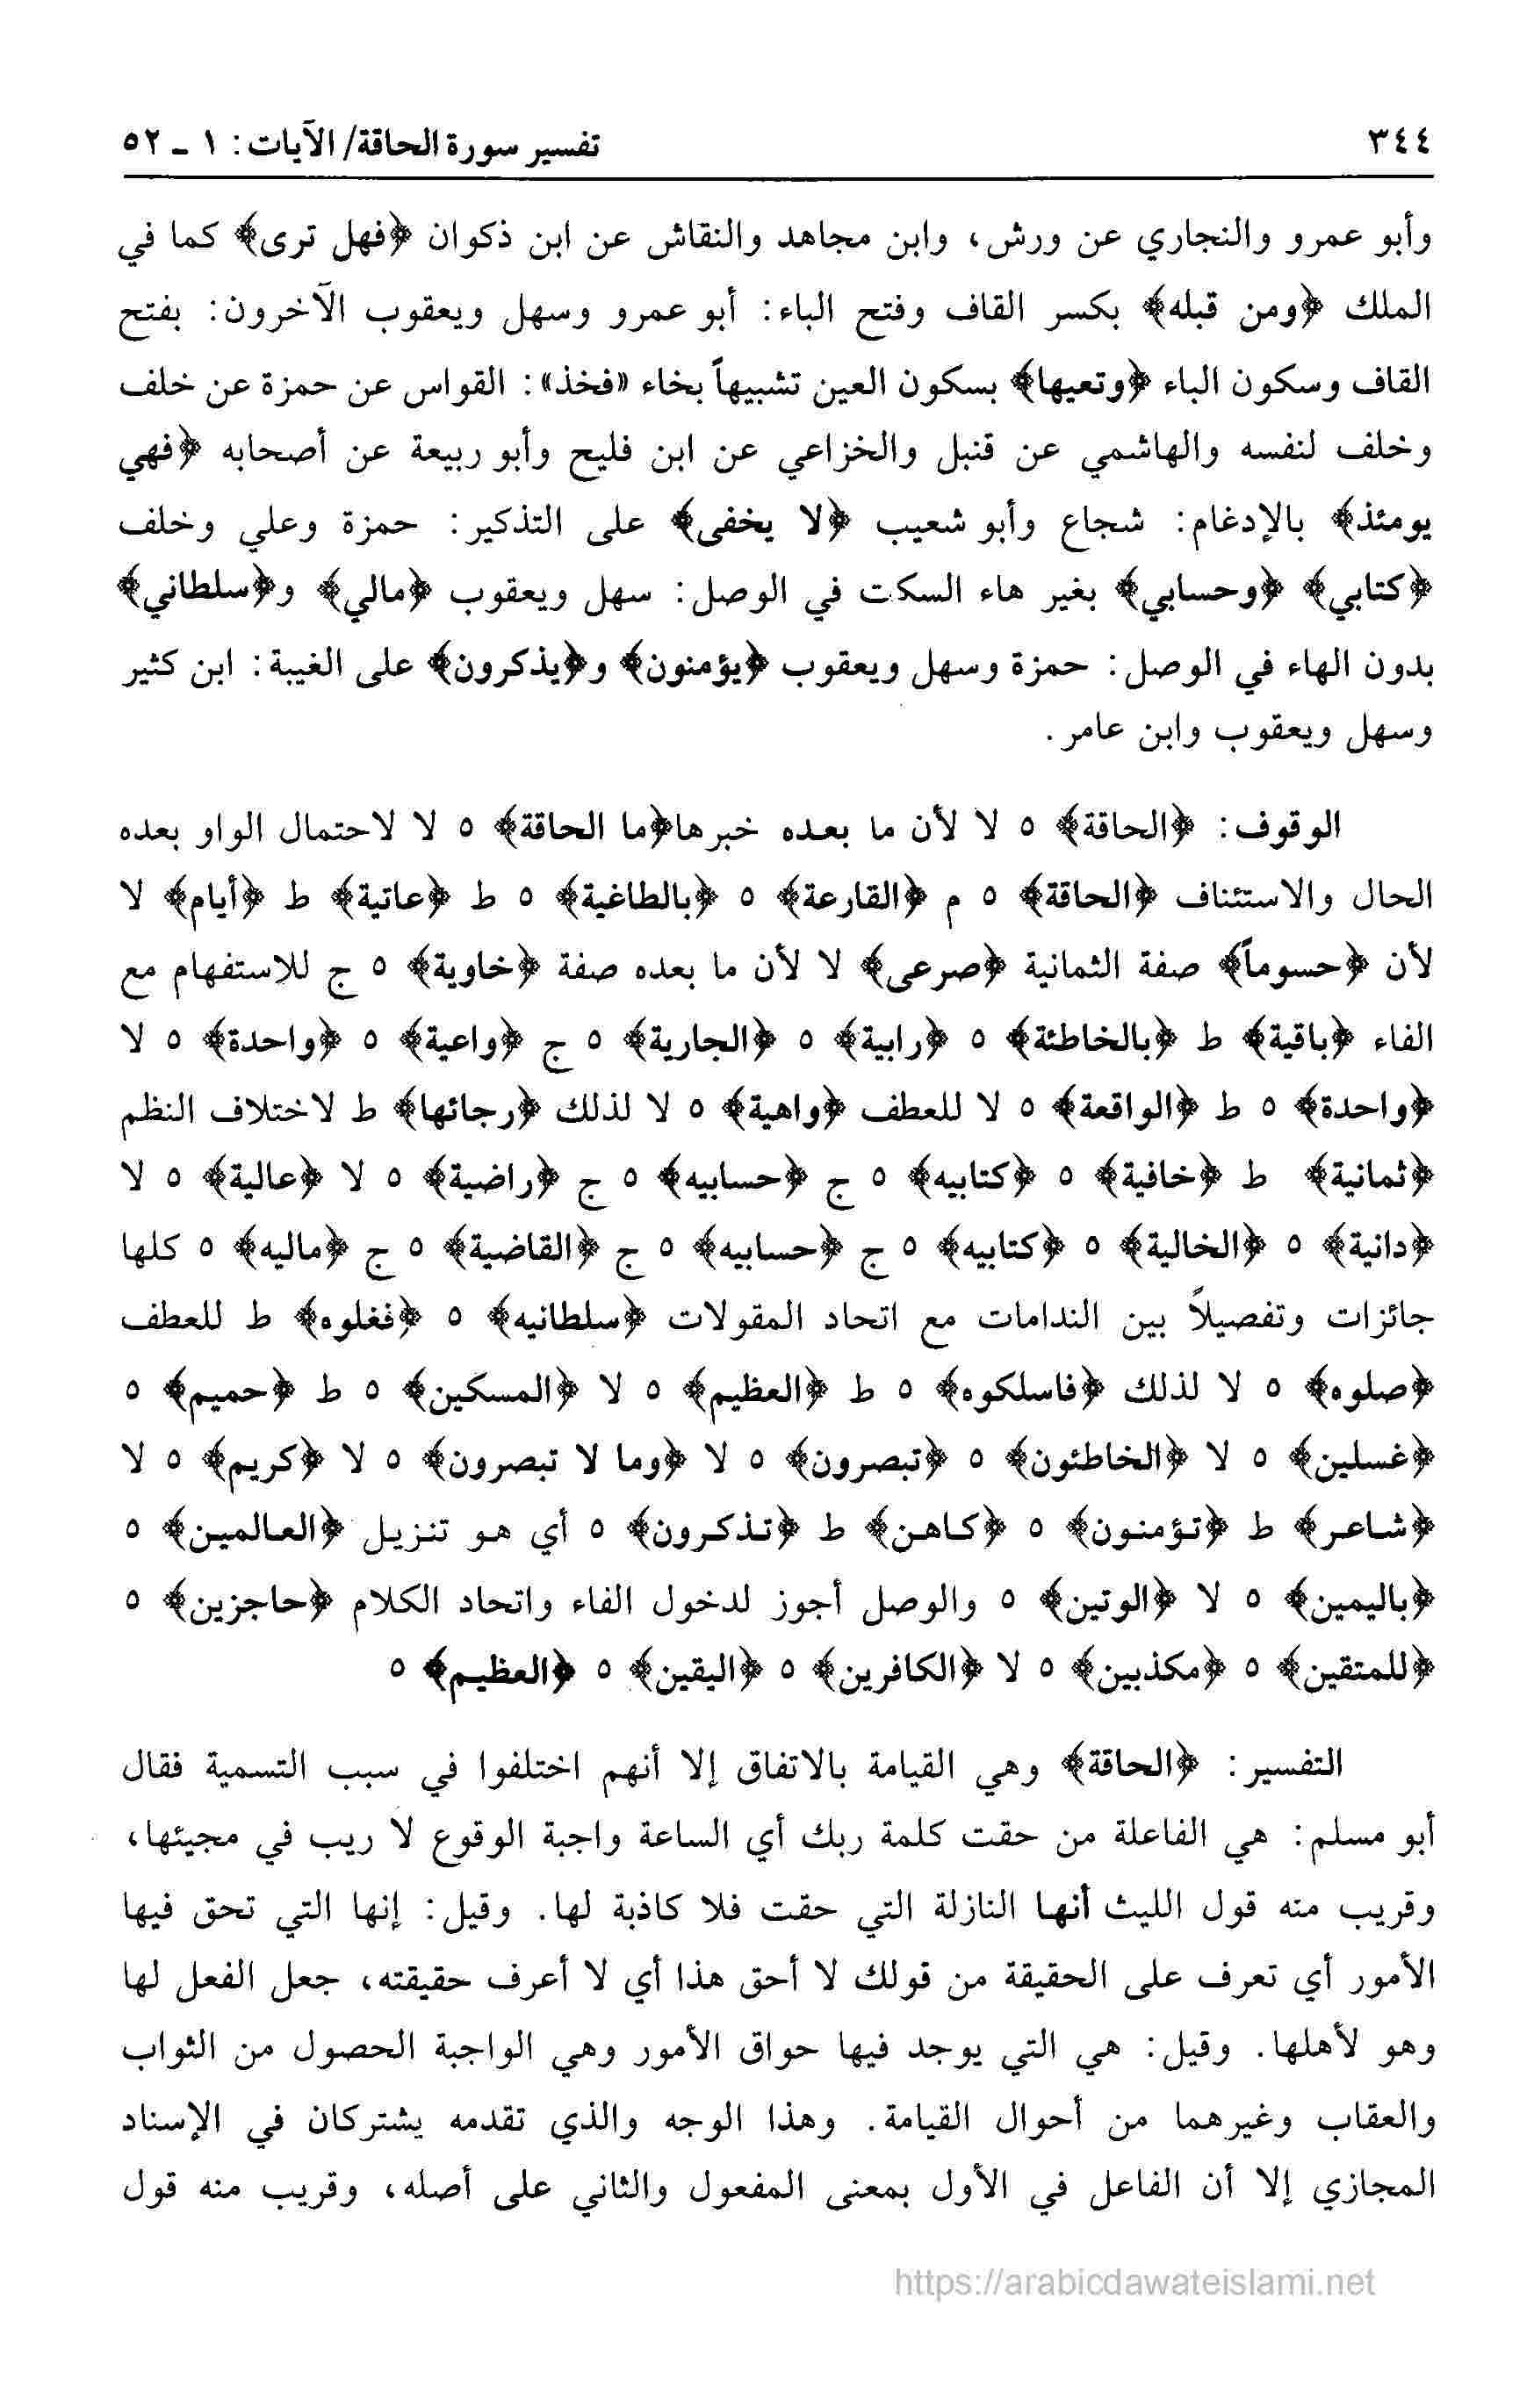 ٣٤٤ تفسير سورة الحاقة/ الآيات: ١ ـ ٥٢
وأبو عمرو والنجاري عن ورش، وابن مجاهد والنقاش عن ابن ذكوان ﴿فهل ترى﴾ كما في
الملك ﴿ومن قبله﴾ بكسر القاف وفتح الباء: أبو عمرو وسهل ويعقوب الآخرون: بفتح
القاف وسكون الباء ﴿وتعيها﴾ بسكون العين تشبيهاً بخاء «فخذ»: القواس عن حمزة عن خلف
وخلف لنفسه والهاشمي عن قنبل والخزاعي عن ابن فليح وأبو ربيعة عن أصحابه ﴿فهي
يومئذ﴾ بالإدغام: شجاع وأبو شعيب ﴿لا يخفى﴾ على التذكير: حمزة وعلي وخلف
﴿كتابي﴾ ﴿وحسابي﴾ بغير هاء السكت في الوصل: سهل ويعقوب ﴿مالي﴾ و﴿سلطاني﴾
بدون الهاء في الوصل: حمزة وسهل ويعقوب ﴿يؤمنون﴾ و﴿يذكرون﴾ على الغيبة: ابن كثير
وسهل ويعقوب وابن عامر.
الوقوف: ﴿الحاقة﴾ ٥ لا لأن ما بعده خبرها﴿ما الحاقة﴾ ٥ لا لاحتمال الواو بعده
الحال والاستئناف ﴿الحاقة﴾ ٥ م ﴿القارعة﴾ ٥ ﴿بالطاغية﴾ ٥ ط ﴿عاتية﴾ ط ﴿أيام﴾ لا
لأن ﴿حسوماً﴾ صفة الثمانية ﴿صرعى﴾ لا لأن ما بعده صفة ﴿خاوية﴾ ٥ ج للاستفهام مع
الفاء ﴿باقية﴾ ط ﴿بالخاطئة﴾ ٥ ﴿رابية﴾ ٥ ﴿الجارية﴾ ٥ ج ﴿واعية﴾ ٥ ﴿واحدة﴾ ٥ لا
﴿واحدة﴾ ٥ ط ﴿الواقعة﴾ ٥ لا للعطف ﴿واهية﴾ ٥ لا لذلك ﴿رجائها﴾ ط لاختلاف النظم
﴿ثمانية﴾ ط ﴿خافية﴾ ٥ ﴿كتابيه﴾ ٥ ج ﴿حسابيه﴾ ٥ ج ﴿راضية﴾ ٥ لا ﴿عالية﴾ ٥ لا
﴿دانية﴾ ٥ ﴿الخالية﴾ ٥ ﴿كتابيه﴾ ٥ ج ﴿حسابيه﴾ ٥ ج ﴿القاضية﴾ ٥ ج ﴿ماليه﴾ ٥ كلها
جائزات وتفصيلاً بين الندامات مع اتحاد المقولات ﴿سلطانيه﴾ ٥ ﴿فغلوه﴾ ط للعطف
﴿صلوه﴾ ٥ لا لذلك ﴿فاسلكوه﴾ ٥ ط ﴿العظيم﴾ ٥ لا ﴿المسكين﴾ ٥ ط ﴿حميم﴾ ٥
﴿غسلين﴾ ٥ لا ﴿الخاطئون﴾ ٥ ﴿تبصرون﴾ ٥ لا ﴿وما لا تبصرون﴾ ٥ لا ﴿كريم﴾ ٥ لا
﴿شاعر﴾ ط ﴿تؤمنون﴾ ٥ ﴿كاهن﴾ ط ﴿تذكرون﴾ ٥ أي هو تنزيل ﴿العالمين﴾ ٥
﴿باليمين﴾ ٥ لا ﴿الوتين﴾ ٥ والوصل أجوز لدخول الفاء واتحاد الكلام ﴿حاجزين﴾ ٥
﴿للمتقين﴾ ٥ ﴿مكذبين﴾ ٥ لا ﴿الكافرين﴾ ٥ ﴿اليقين﴾ ٥ ﴿العظيم﴾ ٥
التفسير: ﴿الحاقة﴾ وهي القيامة بالاتفاق إلا أنهم اختلفوا في سبب التسمية فقال
أبو مسلم: هي الفاعلة من حقت كلمة ربك أي الساعة واجبة الوقوع لا ريب في مجيئها،
وقريب منه قول الليث أنها النازلة التي حقت فلا كاذبة لها. وقيل: إنها التي تحق فيها
الأمور أي تعرف على الحقيقة من قولك لا أحق هذا أي لا أعرف حقيقته، جعل الفعل لها
وهو لأهلها. وقيل: هي التي يوجد فيها حواق الأمور وهي الواجبة الحصول من الثواب
والعقاب وغيرهما من أحوال القيامة. وهذا الوجه والذي تقدمه يشتركان في الإسناد
المجازي إلا أن الفاعل في الأول بمعنى المفعول والثاني على أصله، وقريب منه قول
https://arabicdawateislami.net